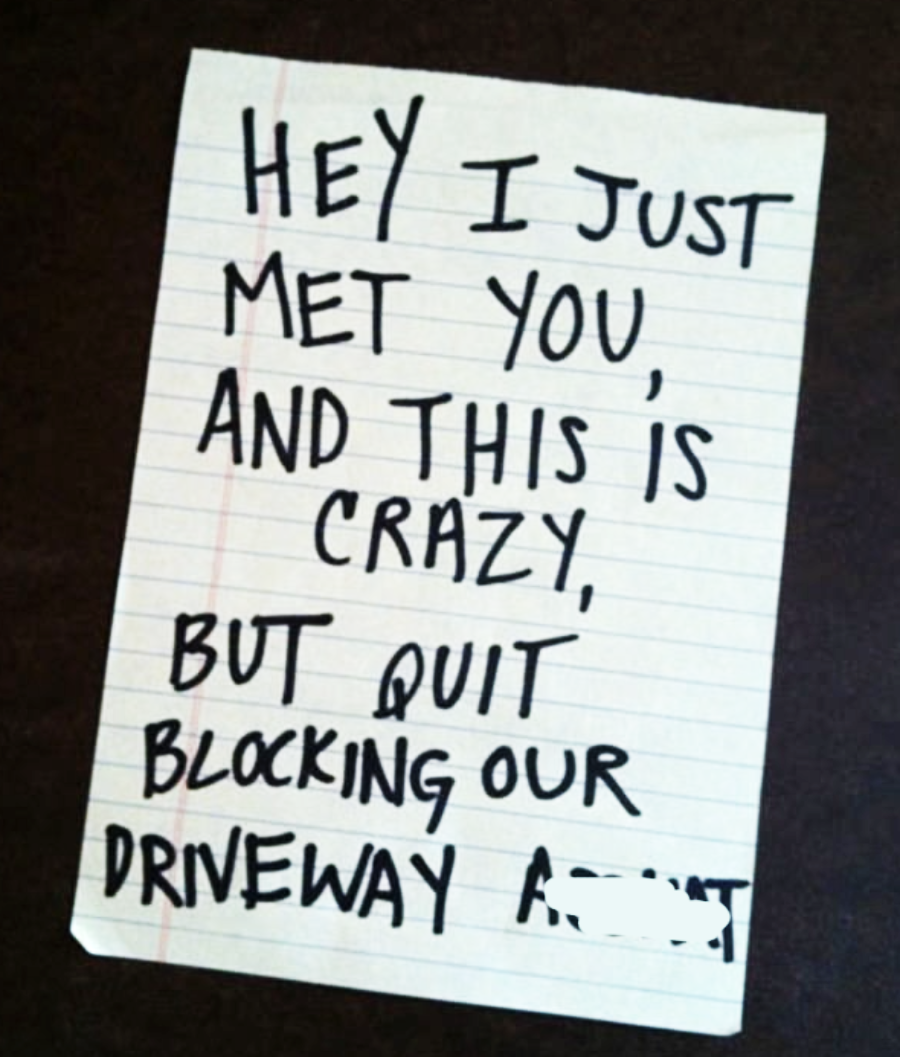 HEY I JUST
MET YOU,
AND THIS IS
CRAZY,
BUT QUIT
BLOCKING OUR
DRIVEWAY